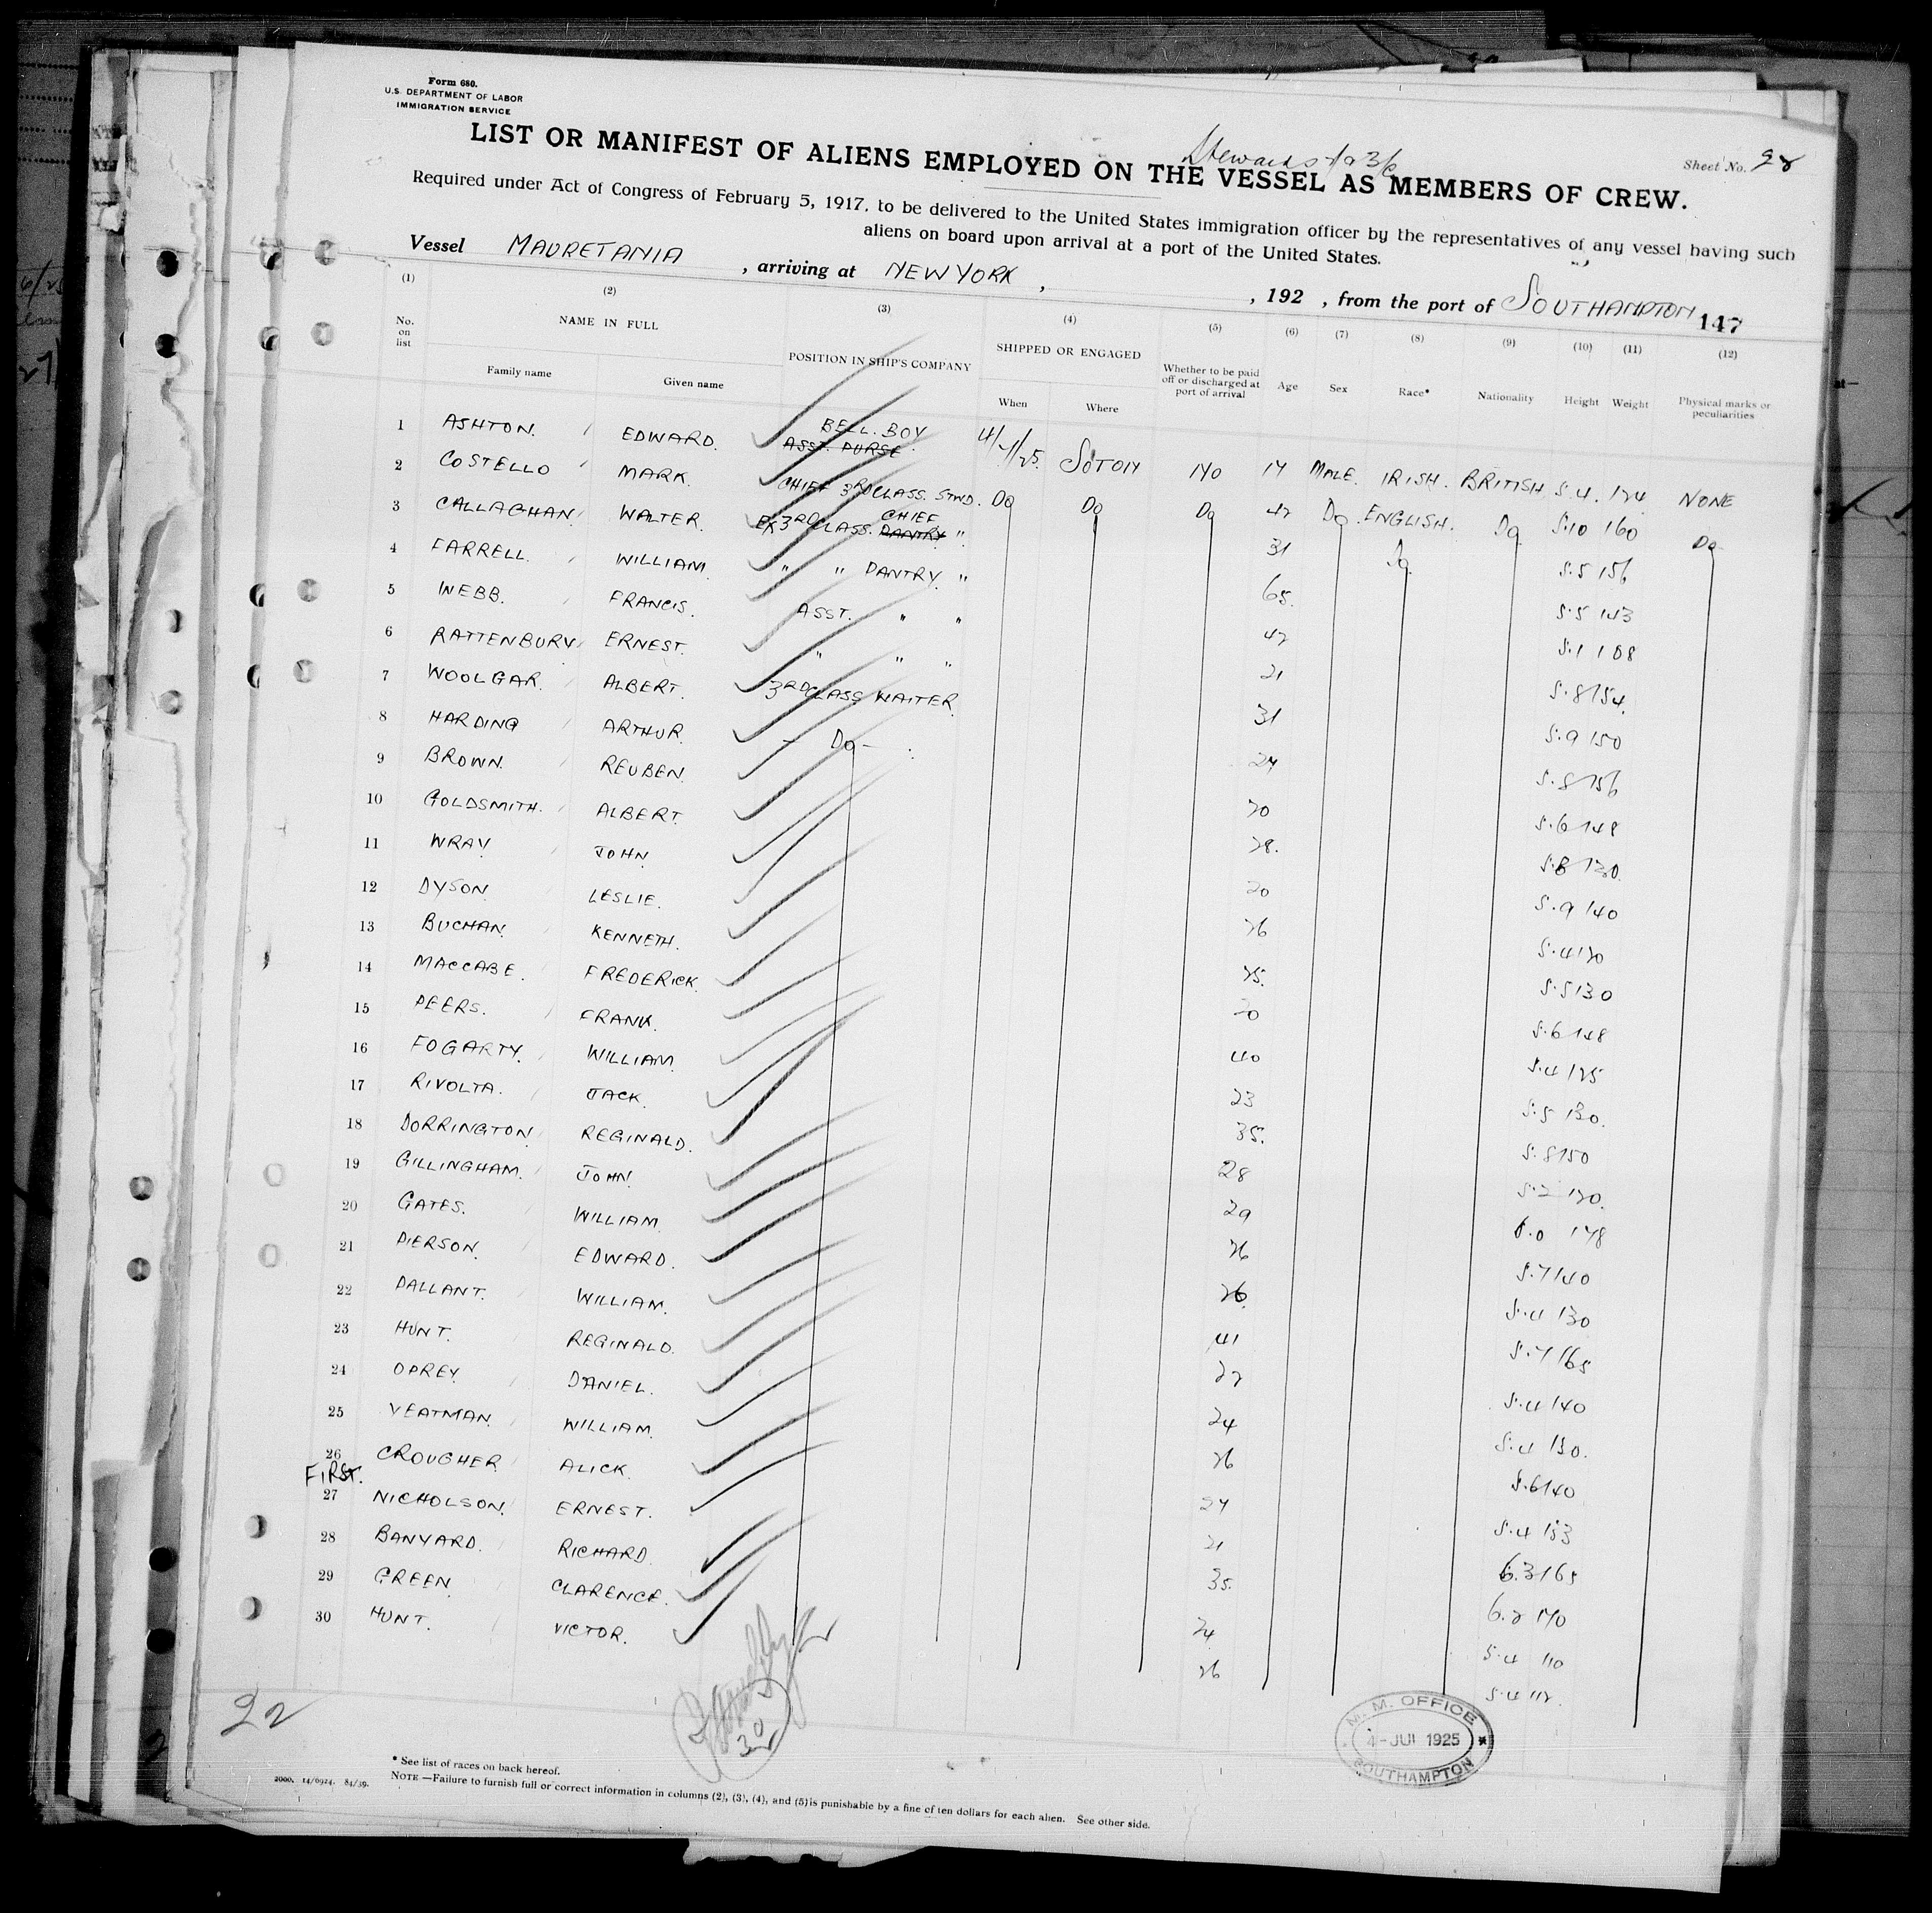 Form 680.
U.S. DEPARTMENT OF LABOR
IMMIGRATION SERVICE
Stewards
Sheet No. 28
LIST OR MANIFEST OF ALIENS EMPLOYED ON THE VESSEL AS MEMBERS OF CREW.
Required under Act of Congress of February 5, 1917, to be delivered to the United States immigration officer by the representatives of any vessel having such
aliens on board upon arrival at a port of the United States.
Vessel MAURETANIA , arriving at NEW YORK , , 192 , from the port of SOUTHAMPTON 147
(1) (2) (3) (4) (5) (6) (7) (8) (9) (10) (11) (12)
No. on list NAME IN FULL POSITION IN SHIP'S COMPANY SHIPPED OR ENGAGED Whether to be paid off or discharged at port of arrival Age Sex Race* Nationality Height Weight Physical marks or peculiarities
Family name Given name When Where
1 ASHTON. EDWARD. BELL. BOY ASST. PURSE 4/7/25. SOTON NO 17 MALE. IRISH. BRITISH 5.4. 124 NONE
2 COSTELLO MARK. CHIEF 3RD CLASS. STWD. DO DO DO 42 DO ENGLISH. DO 5.10 160 DO
3 CALLAGHAN WALTER. EX 3RD CLASS. CHIEF PANTRY " 31 DO 5.5 156
4 FARRELL. WILLIAM. " " PANTRY " 65. 5.5 143
5 WEBB. FRANCIS. ASST. " " 42 5.1 108
6 RATTENBURY ERNEST. " " " 21 5.8 154.
7 WOOLGAR. ALBERT. 3RD CLASS WAITER. 31 5.9 150
8 HARDING ARTHUR. - DO - 27 5.8 156
9 BROWN. REUBEN. 20 5.6 148
10 GOLDSMITH. ALBERT. 28. 5.8 130.
11 WRAY JOHN. 20 5.9 140
12 DYSON. LESLIE. 26 5.4 120
13 BUCHAN. KENNETH. 25. 5.5 130
14 MACCABE. FREDERICK. 20 5.6 148
15 PEERS. FRANK. 40 5.4 125
16 FOGARTY. WILLIAM. 23 5.5 130.
17 RIVOLTA. JACK. 35. 5.8 150
18 DORRINGTON REGINALD. 28 5.2 120.
19 GILLINGHAM. JOHN. 29 6.0 178
20 GATES. WILLIAM. 26 5.7 140
21 PIERSON. EDWARD. 26. 5.4 130
22 PALLANT. WILLIAM. 41 5.7 165
23 HUNT. REGINALD. 22 5.4 140
24 OPREY DANIEL. 24 5.4 130.
25 YEATMAN. WILLIAM. 26 5.6 140
26 CROUGHER ALICK. 27 5.4 133
FIRST.
27 NICHOLSON. ERNEST. 21 6.3 165
28 BANYARD. RICHARD. 35. 6.2 170
29 GREEN. CLARENCE. 24 5.4 110
30 HUNT. VICTOR. 26 5.4 112.
22
30
M. M. OFFICE
4-JUL 1925
SOUTHAMPTON
* See list of races on back hereof.
2000. 14/6924. 84/39.
NOTE.—Failure to furnish full or correct information in columns (2), (3), (4), and (5) is punishable by a fine of ten dollars for each alien. See other side.